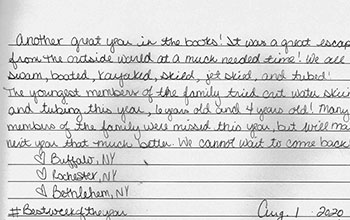 Another great year in the books! It was a great escap
from the outside world at a much needed time! We all
swam, boated, kayaked, skied, jet skied, and tubed!
The youngest members of the family tried out water skiin
and tubing this year, 6 years old and 4 years old! Many
members of the family were missed this year, but will ma
next year that much better. We cannot wait to come back
♡ Buffalo, NY
♡ Rochester, NY
♡ Bethlehem, NY
#Bestweekoftheyear
Aug. 1 2020